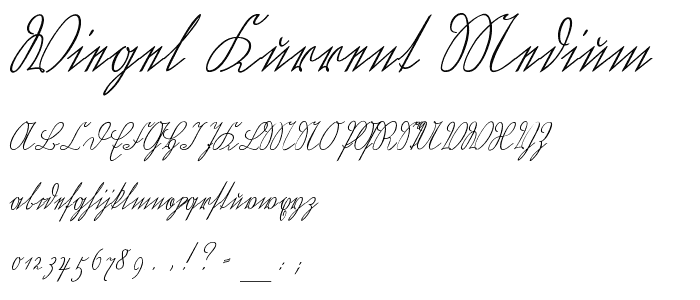 Wiegel Kurrent Medium
ABCDEFGHIJKLMNOPQRSTUVWXYZ
abcdefghijklmnopqrstuvwxyz
0123456789.,!?-_:;